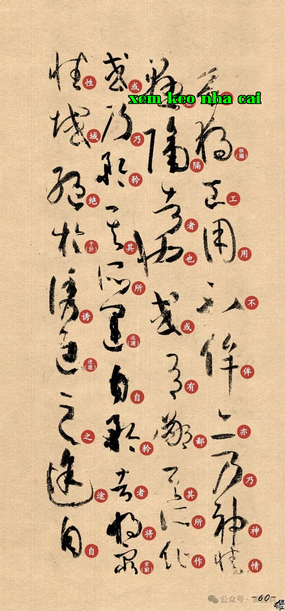 xem keo nha cai
豈獨工用不侔亦乃神情
懸隔者也或有鄙其所作
或乃矜其所運自矜者將窮
性域絕於誘進之途自
公众号
-60-